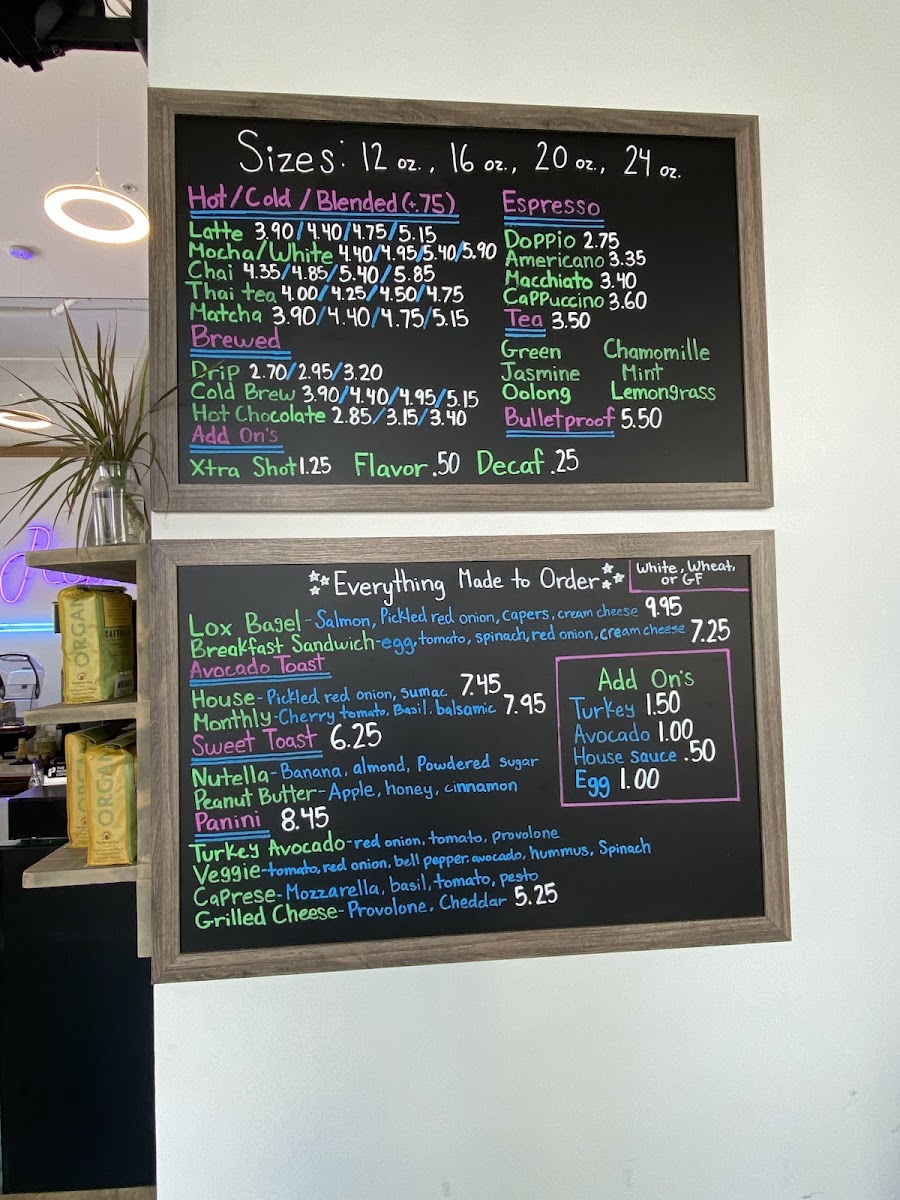 Sizes: 12 oz., 16 oz., 20 oz., 24 oz.
Hot/Cold/Blended (+.75)
Latte 3.90/4.40/4.75/5.15
Mocha/White 4.40/4.95/5.40/5.90
Chai 4.35/4.85/5.40/5.85
Thai tea 4.00/4.25/4.50/4.75
Matcha 3.90/4.40/4.75/5.15
Brewed
Drip 2.70/2.95/3.20
Cold Brew 3.90/4.40/4.95/5.15
Hot Chocolate 2.85/3.15/3.40
Add On's
Xtra Shot 1.25 Flavor .50 Decaf .25
Espresso
Doppio 2.75
Americano 3.35
Macchiato 3.40
Cappuccino 3.60
Tea 3.50
Green Chamomille
Jasmine Mint
Oolong Lemongrass
Bulletproof 5.50
Everything Made to Order
White, Wheat, or GF
Lox Bagel - Salmon, Pickled red onion, capers, cream cheese 9.95
Breakfast Sandwich - egg, tomato, spinach, red onion, cream cheese 7.25
Avocado Toast
House - Pickled red onion, sumac 7.45
Monthly - Cherry tomato, Basil, balsamic 7.95
Sweet Toast 6.25
Nutella - Banana, almond, Powdered sugar
Peanut Butter - Apple, honey, cinnamon
Panini 8.45
Turkey Avocado - red onion, tomato, provolone
Veggie - tomato, red onion, bell pepper, avocado, hummus, Spinach
Caprese - Mozzarella, basil, tomato, pesto
Grilled Cheese - Provolone, Cheddar 5.25
Add On's
Turkey 1.50
Avocado 1.00
House sauce .50
Egg 1.00
ORGAN
ORGAN